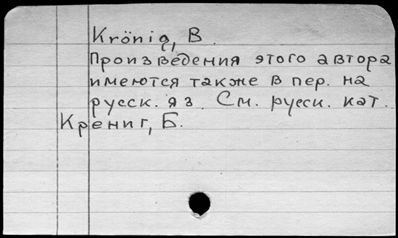 Krönig, B.
Произведения этого автора
имеются также в пер. на
русск. яз. См. русск. кат.
Крениг, Б.